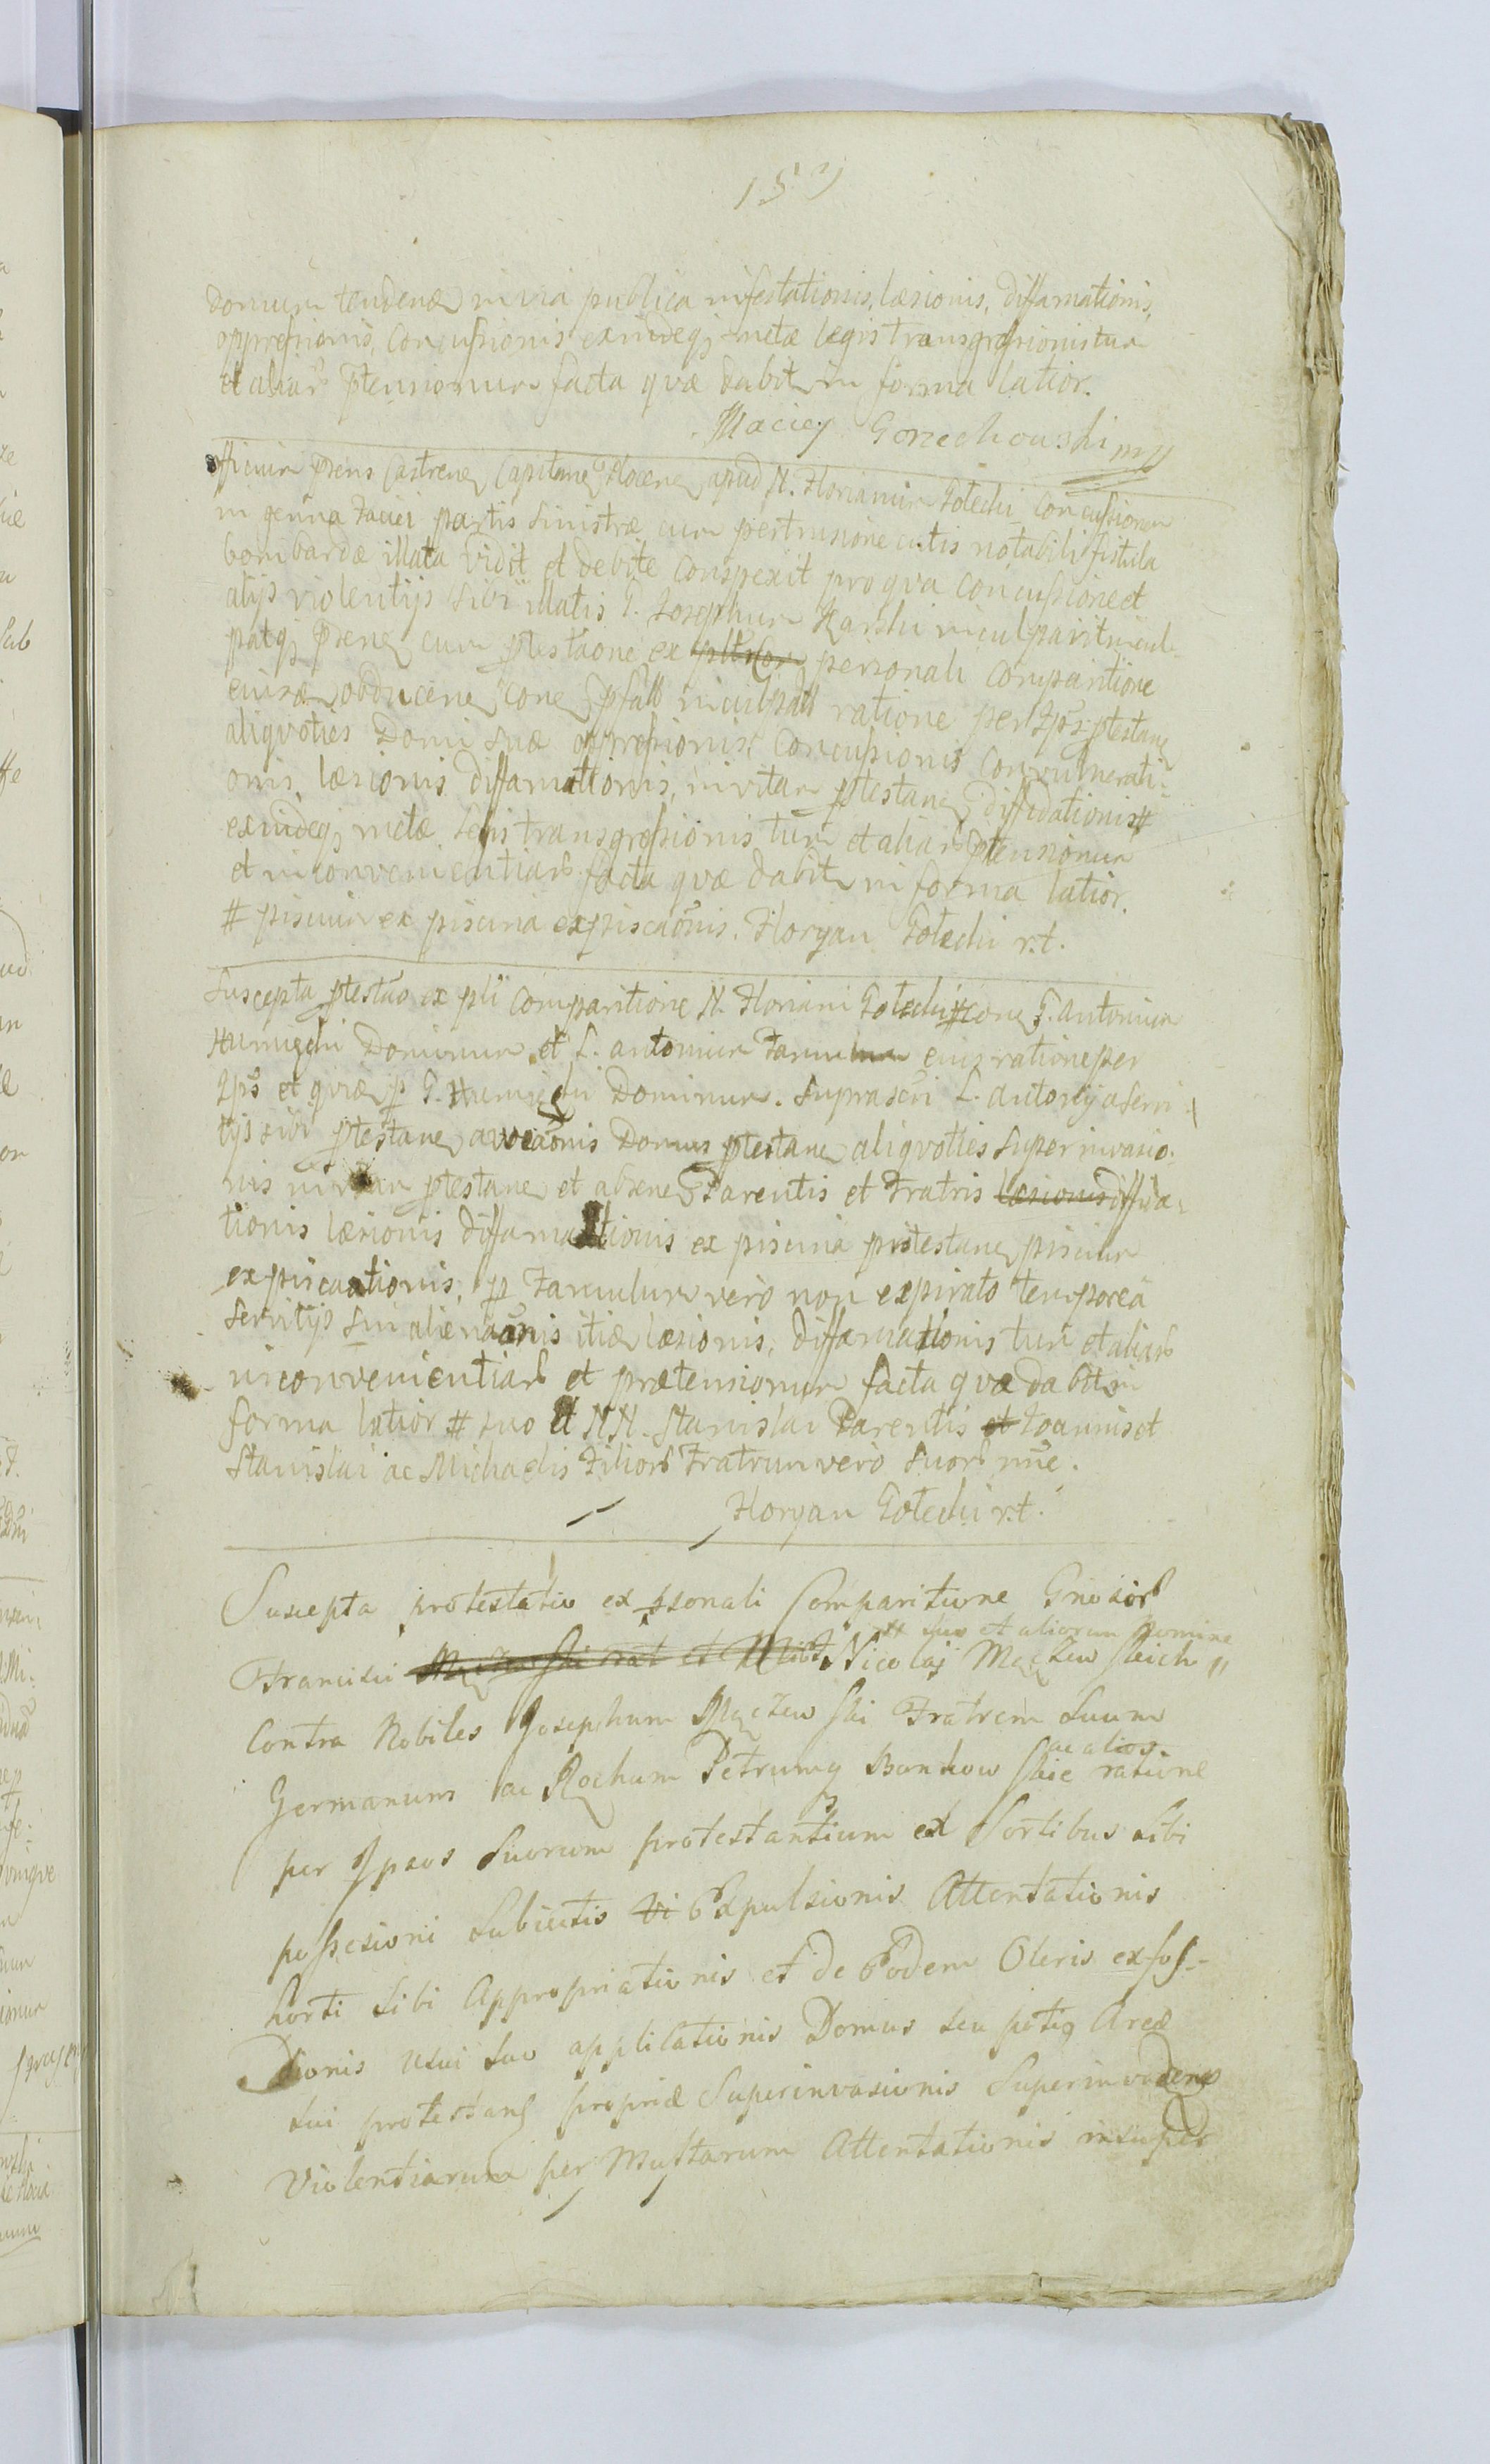 domum tendenȩ in via publica infestationis, læsionis, diffamationis,
oppressionis, Concussionis exindeq; metæ legis transgressionis tum
et aliarȣ ptensionum facta quæ dabitȩ in forma latior.
Maciey Gorzechowski mp
officium pseñs Castrenȩ Capitanȩ Plocenȩ apud N. Florianum Gołecki Concussionem
in gennâ Faciei partis sinistræ cum pertrusione cutis notabili fistula
bombardæ illata vidit et debite conspexit pro qua Concussione et
alijs violentijs sibi illatis G. Josephum Karski inculpavit incul-
patq; psenȩ cum ptestaone ex personali comparitione
eiusdȩ obducenȩ conȩ pfatȣ inculpatȣ ratione per Ipȣ ptestanȩ
aliquoties Domi suæ oppressionis Concussionis Convulnerati-
onis, læsionis diffamationis, in vitam ptestanȩ diffidationis #
exindeq; metæ legis transgressionis tum et aliarȣ ptensionum
et inconvenientiarȣ facta quæ dabitȩ in forma latior.
# piscium ex piscina expiscãonis. Floryan Gołecki r.t.
Suscepta ptestao ex pli comparitione N. Floriani Gołecki # conȩ G. Antonium
Humięcki Dominum et L. Antonium Famulum eius ratione per
Ipȣ et quidȩ p G. Humięcki Dominum. suprascri L. Antonij a servi-
tijs sibi ptestanȩ avocãonis Domus ptestanȩ aliquoties superinvasio-
nis in vitam ptestanȩ et absenȩ Parentis et Fratris læsionis diffida-
tionis læsionis diffamationis ex piscina protestanȩ piscium
expiscationis, p Famulum vero non expirato tempore a
servitijs sui alienãonis itidȩ læsionis, diffamationis tum et aliarȣ
inconvenientiarȣ et prætensionum facta quæ dabitȩ in
forma latior # suo et NN. Stanislai Parentis et Joannis et
Stanislai ac Michaelis Filiorȣ Fratrum vero suorȣ nñe.
Floryan Gołecki r.t.
Suscepta protestatio ex psonali Comparitione Gnosorȣ
# suo et aliorum Nomine
Francisci Nicolaj Mączewskich
Contra Nobiles Josephum Mączewski Fratrem suum
ac alios
Germanum ac Rochum Petrumq Bońkowskie ratione
per Ipsos suorum protestantium ex Sortibus sibi
possesioni subiectis vi Expulsionis Attentationis
horti sibi Appropriationis et de Eodem Oleris exfos-
sionis usui suo applicationis Domus seu potiq Areæ
sui protestanȩ propriæ Superinvasionis Superinvadenȩ
Violentiarum per Attentationis insuper